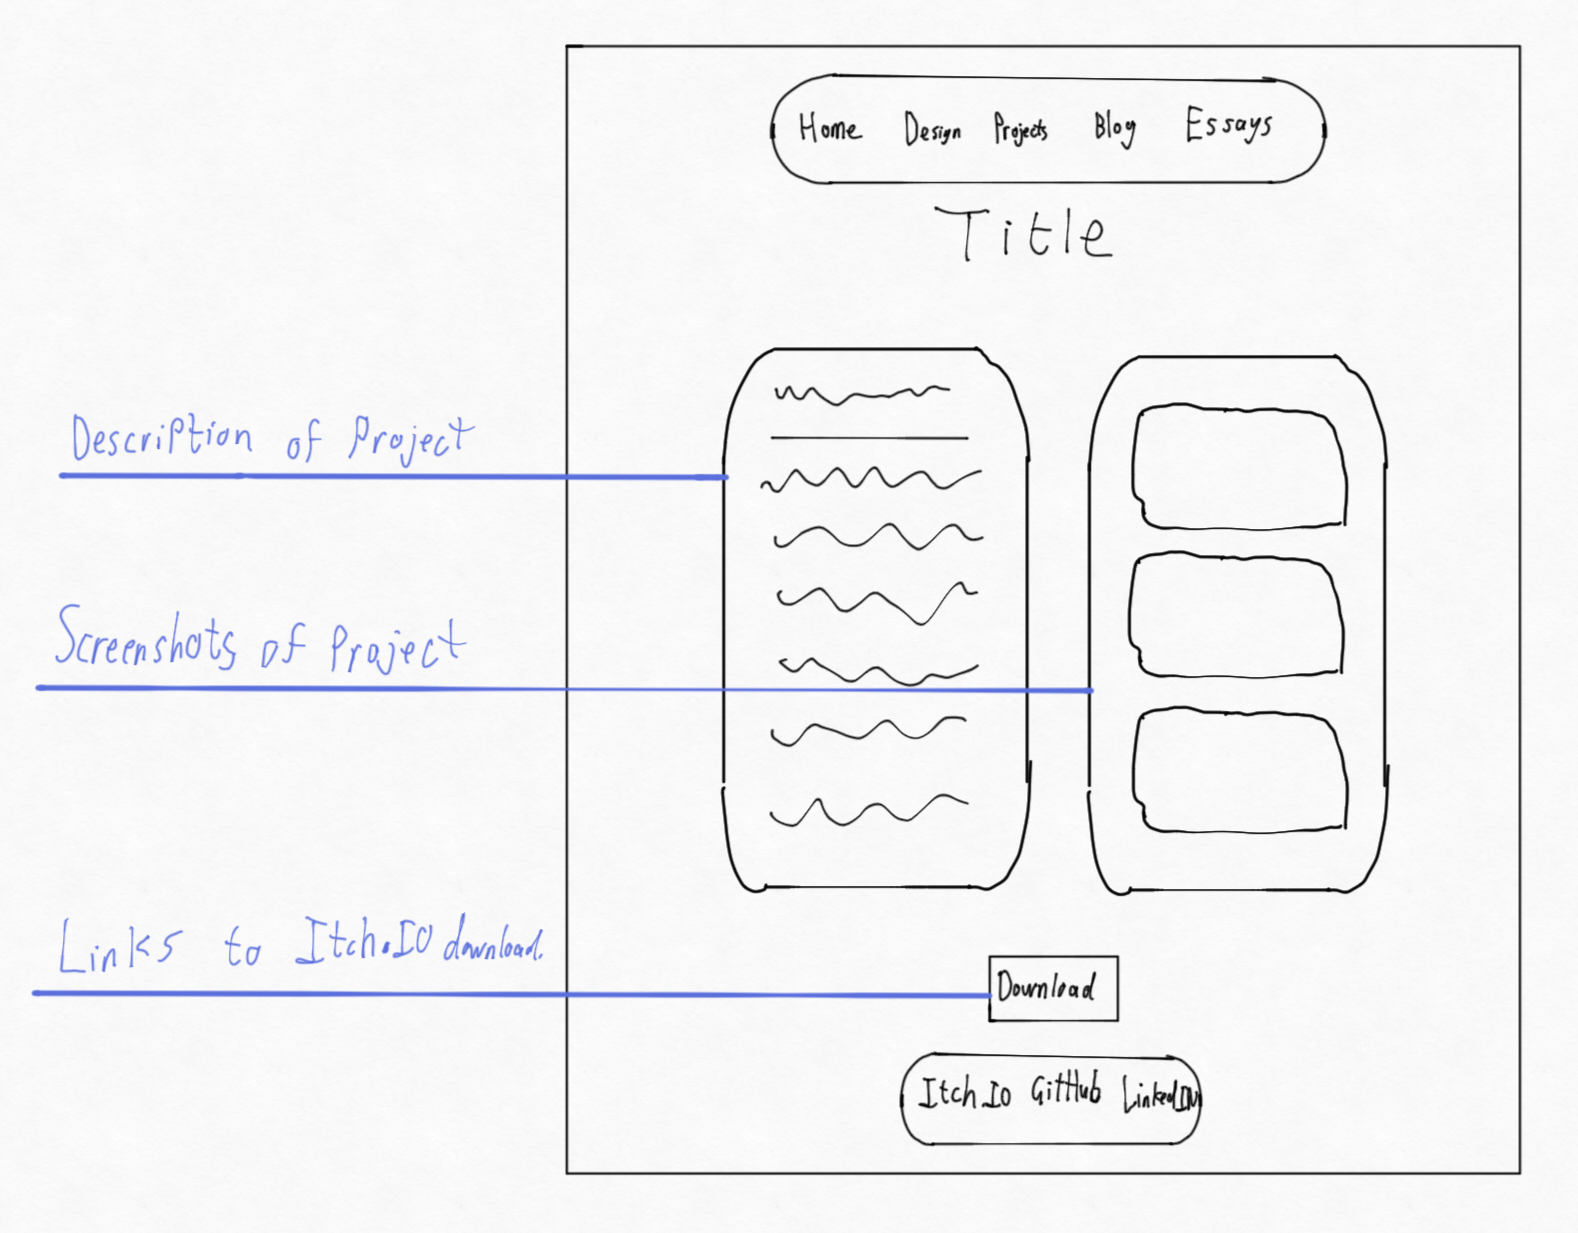 Home Design Projects Blog Essays
Title
Description of Project
Screenshots of Project
Links to Itch.IO download.
Download
Itch.Io GitHub LinkedIN